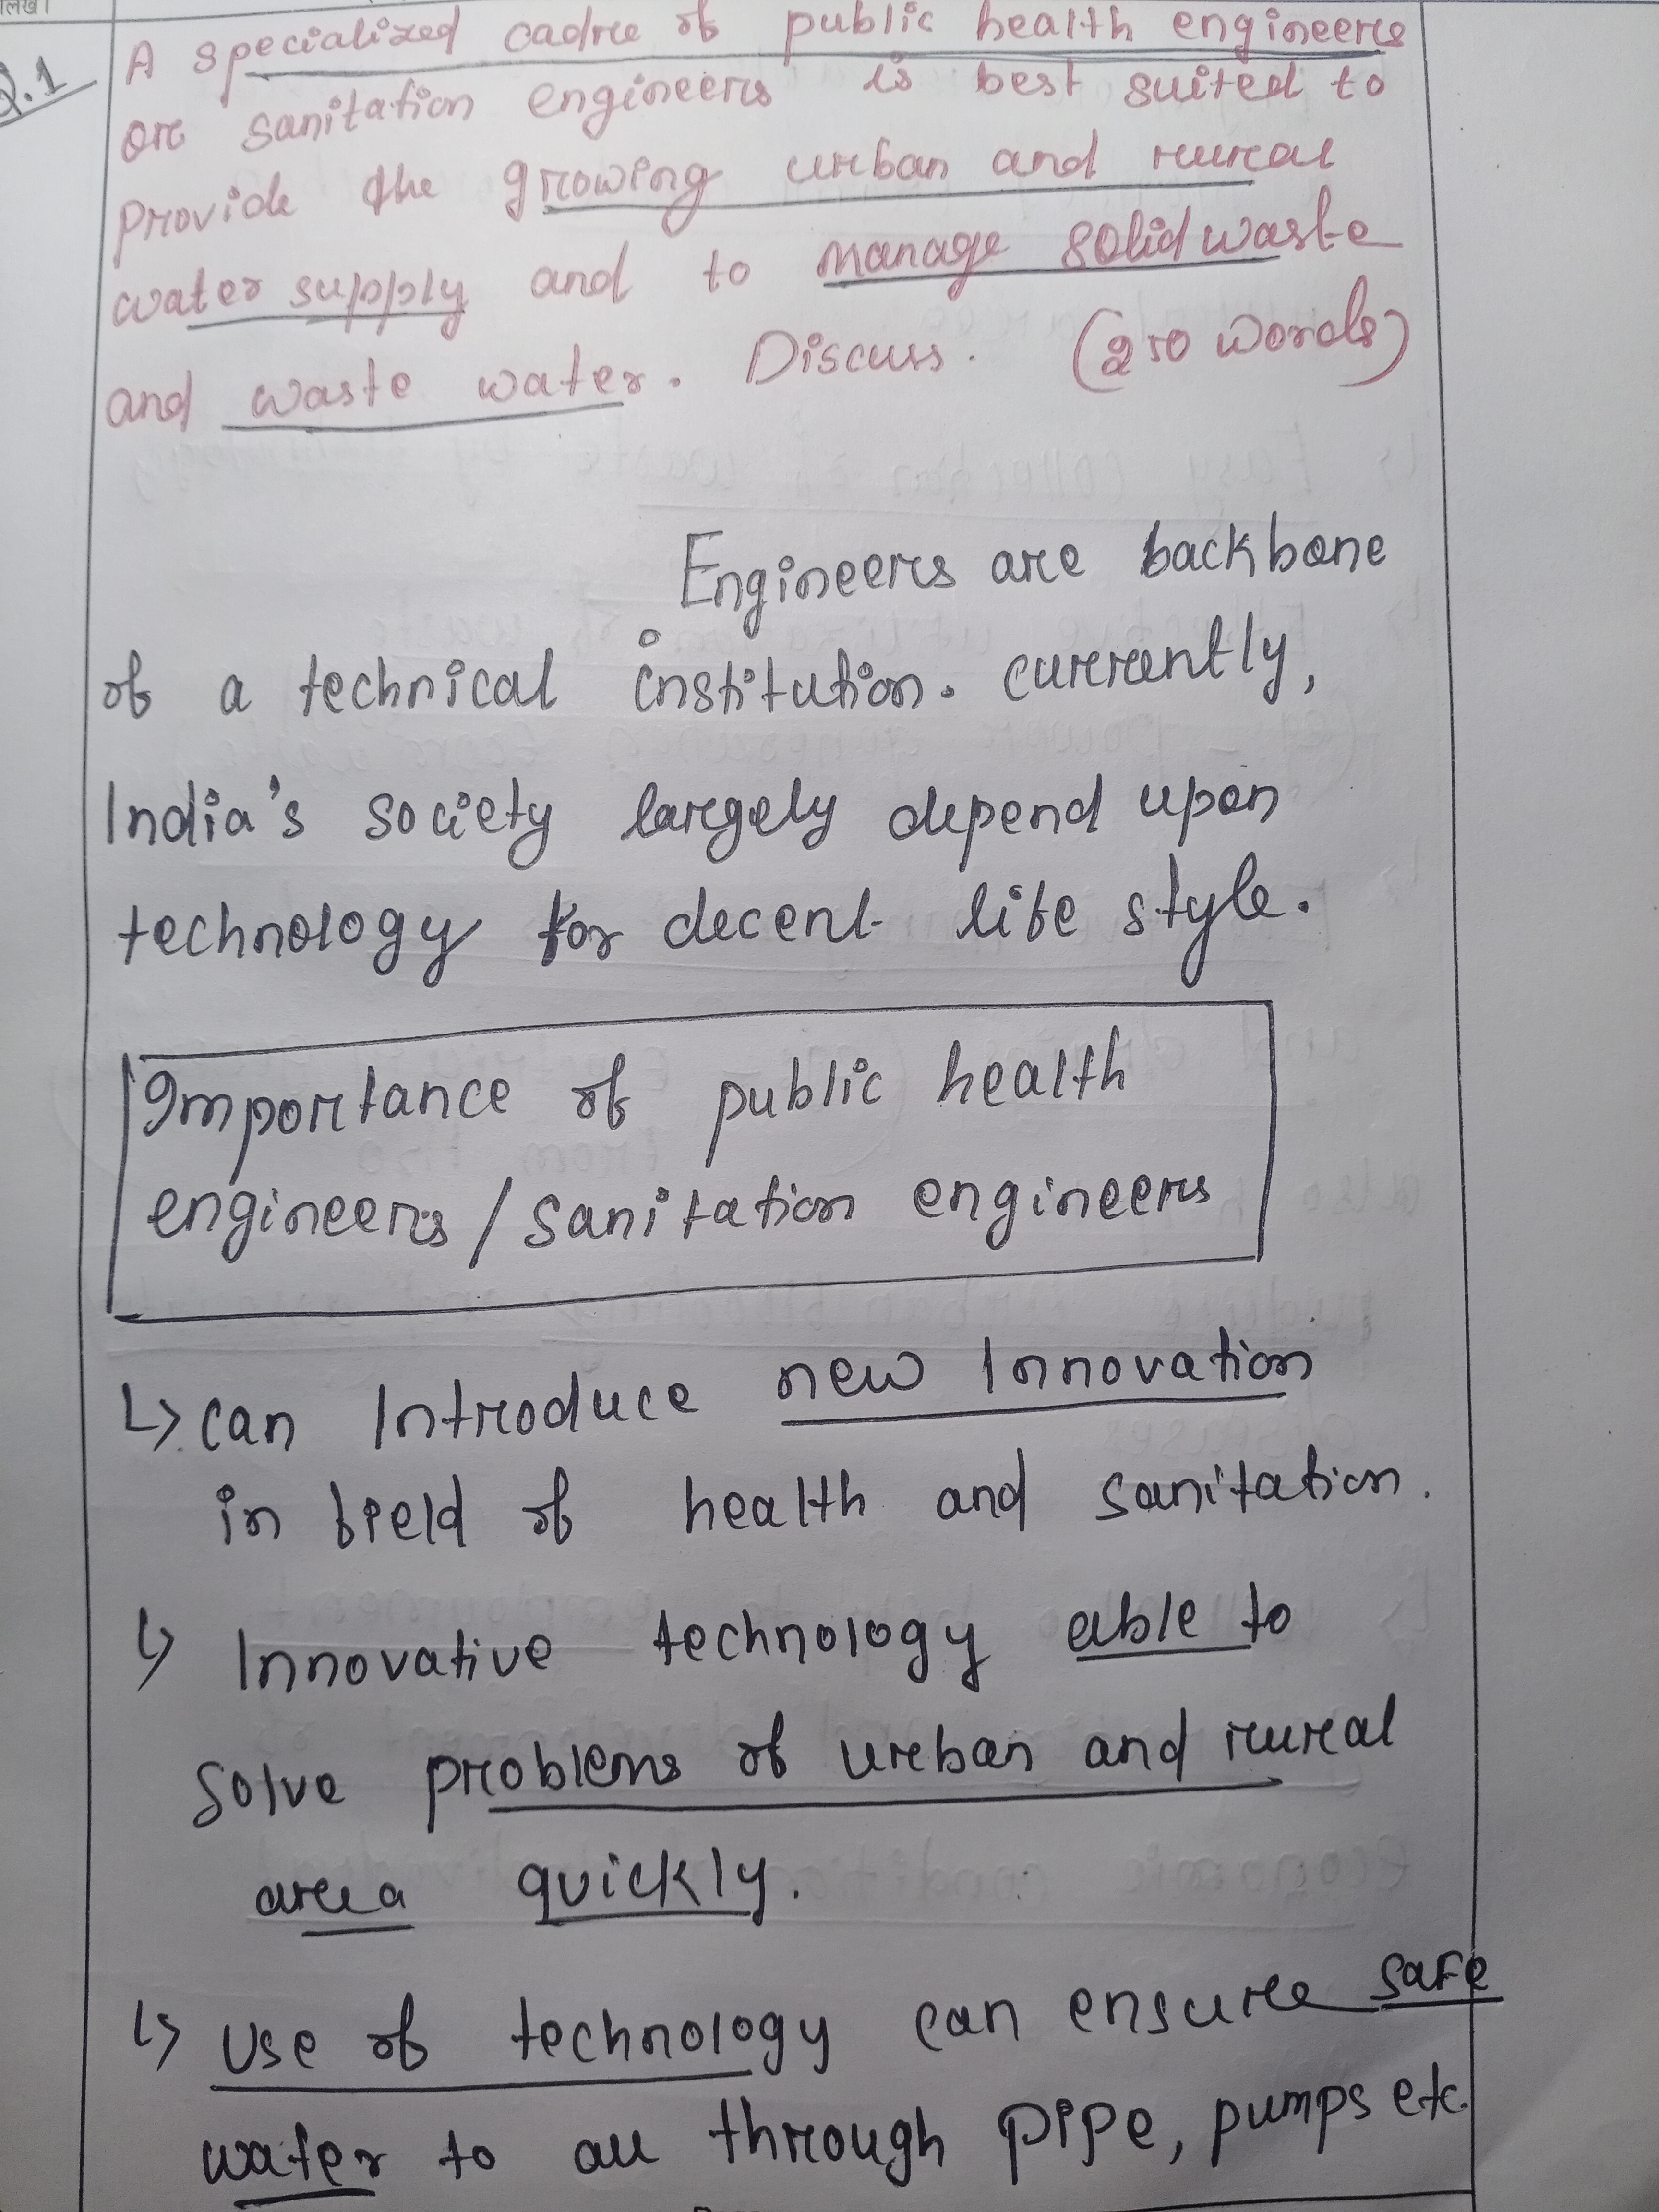 लिखें।
Q.1
A specialized cadre of public health engineers
or sanitation engineers is best suited to
provide the growing urban and rural
water supply and to manage solid waste
and waste water. Discuss. (250 words)
Engineers are backbone
of a technical institution. currently,
India's society largely depend upon
technology for decent life style.
Importance of public health
engineers / sanitation engineers
↳ can Introduce new Innovation
in field of health and sanitation.
↳ Innovative technology able to
solve problems of urban and rural
area quickly.
↳ Use of technology can ensure safe
water to all through pipe, pumps etc.